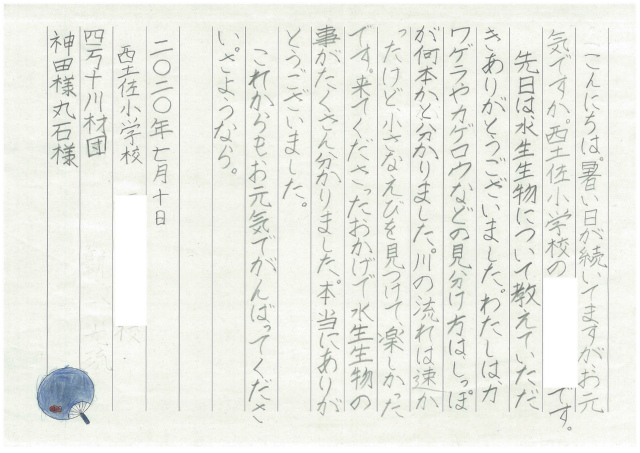 こんにちは。暑い日が続いてますがお元
気ですか。西土佐小学校の
です。
先日は、水生生物について教えていただ
きありがとうございました。わたしは、カ
ワゲラやカゲロウなどの見分け方は、しっぽ
が何本かと分かりました。川の流れは速か
ったけど、小さなえびを見つけて楽しかった
です。来てくださったおかげで水生生物の
事がたくさん分かりました。本当にありが
とうございました。
これからもお元気でがんばってくださ
い。さようなら。
二〇二〇年七月十日
西土佐小学校
四万十川材団
神田様丸石様